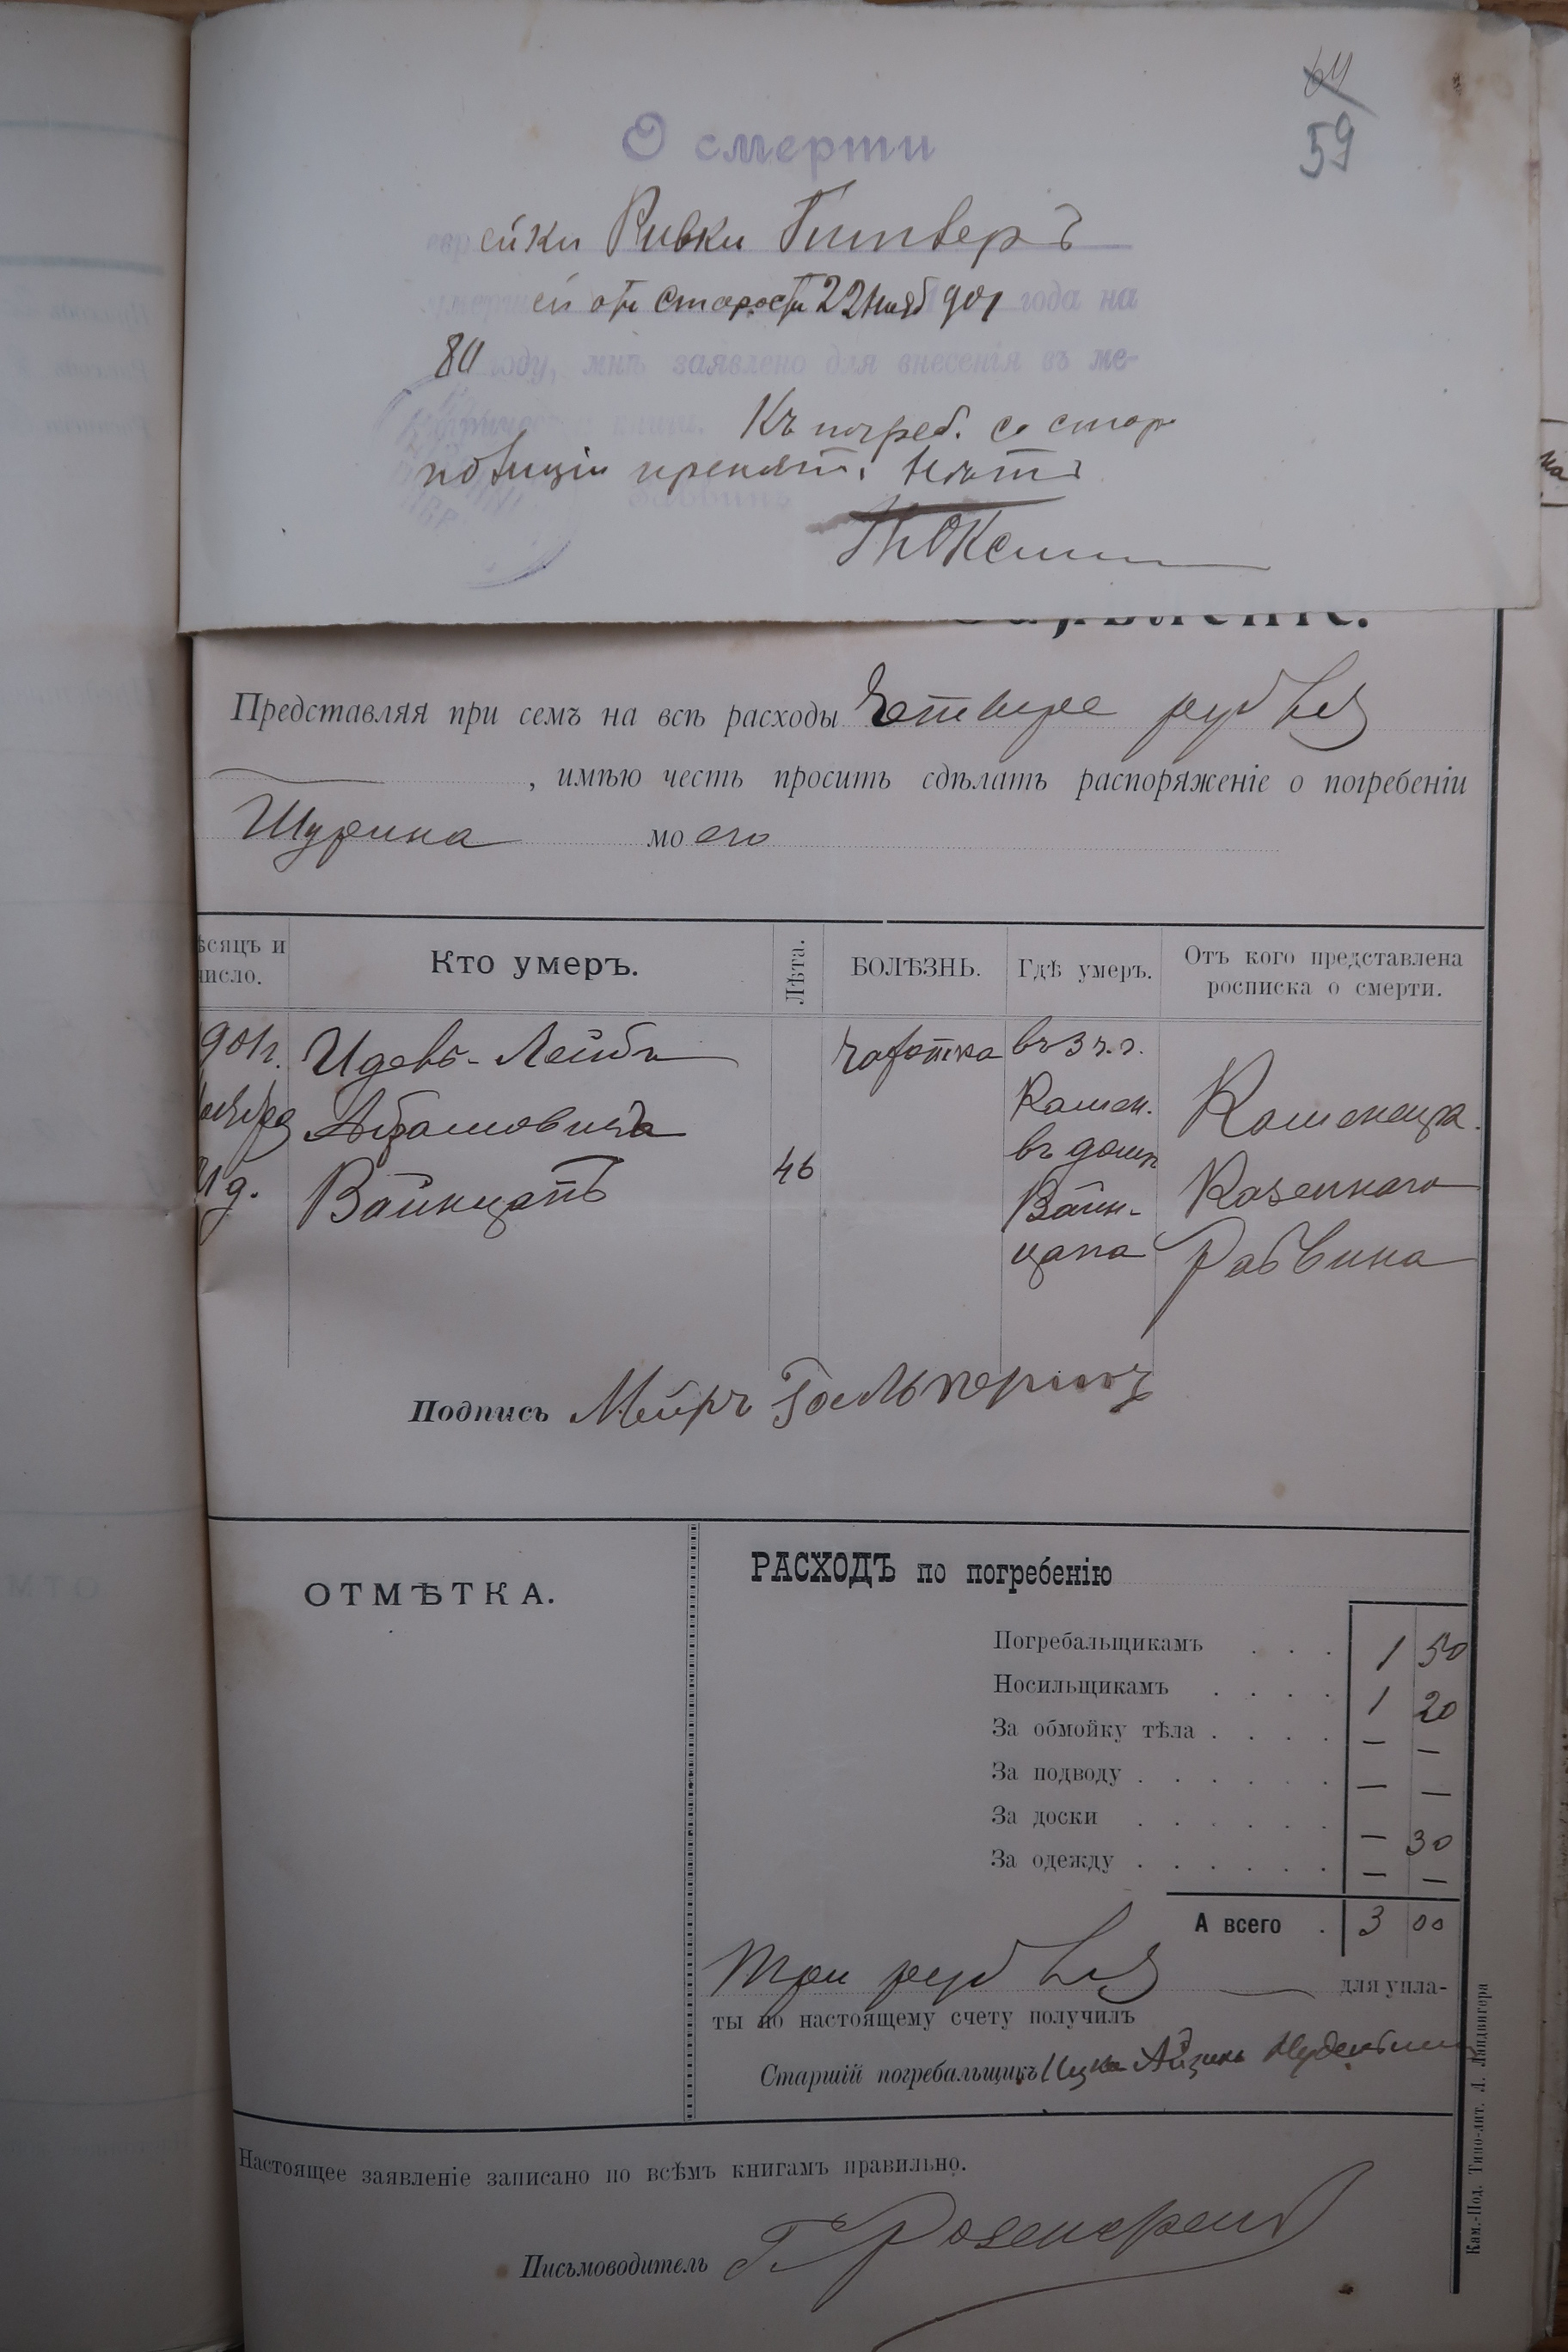 64
59
О смерти
еврейки Ривки Питверъ
ей отъ старости 22 Нояб 901 года на
80 году, мнѣ заявлено для внесенія въ ме-
Къ погреб. со стор
полиціи препятс. нѣтъ
Представляя при семъ на всѣ расходы Четыре рубля
, имѣю честь просить сдѣлать распоряженіе о погребеніи
Шурина моего
ѣсяцъ и число. Кто умеръ. Лѣта. БОЛѢЗНЬ. Гдѣ умеръ. Отъ кого представлена росписка о смерти.
901г. Идевъ-Лейбъ чахотка въ 3 ч. г.
Ноября Абрамовичъ Камен. Каменецк.
21 д. Вайнцапъ 46 въ домѣ Казеннаго
Вайн-
цапа Раввина
Подпись Мейръ Гальперинъ
ОТМѢТКА.
РАСХОДЪ по погребенію
Погребальщикамъ . . . 1 50
Носильщикамъ . . . . 1 20
За обмойку тѣла . . . . — —
За подводу . . . . . . — —
За доски . . . . . . — 30
За одежду . . . . . . — —
А всего . 3 00
Три рубля для упла-
ты по настоящему счету получилъ
Старшій погребальщикъ Ицко Айзикъ
Настоящее заявленіе записано по всѣмъ книгамъ правильно.
Письмоводитель
Кам.-Под. Типо-лит. Л. Ландвигера